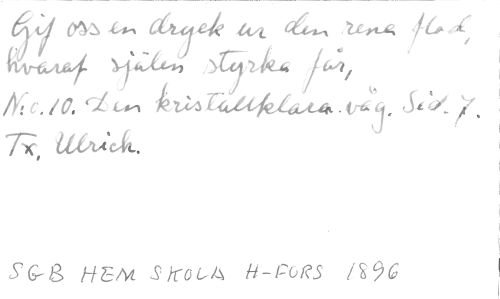 Gif oss en dryck ur den rena flod,
hvaraf själen styrka får,
N:o. 10. Den kristallklara våg. Sid. 7.
Tx. Ulrich.
SGB HEM SKOLA H-FORS 1896